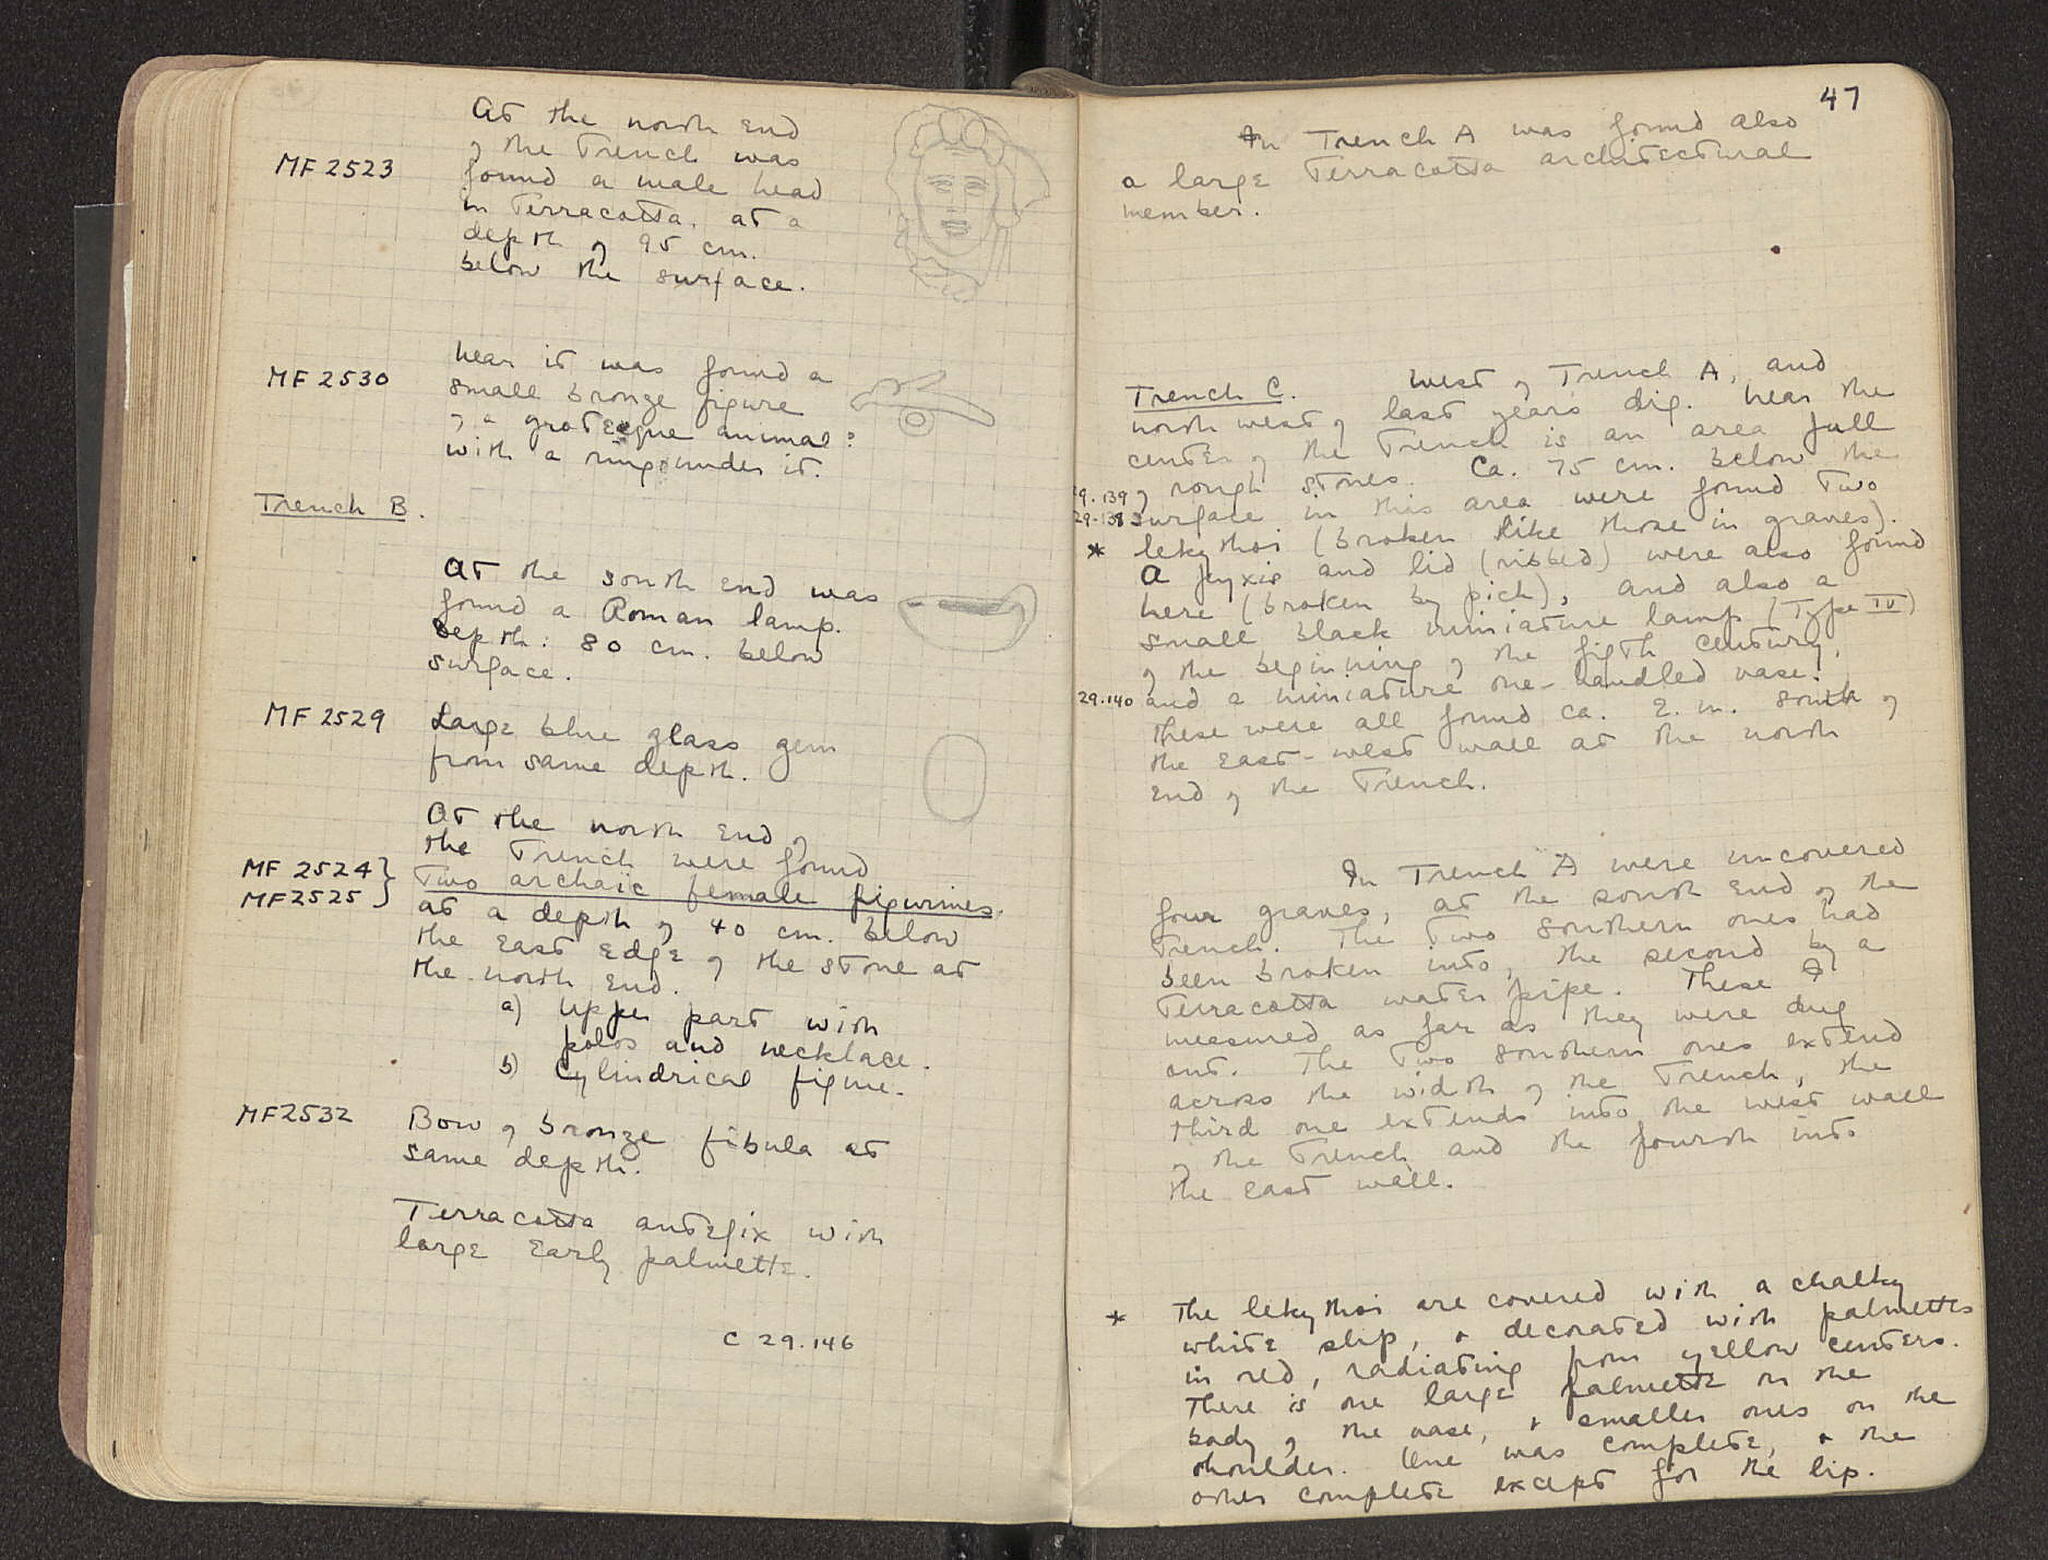 At the north end
of the Trench was
MF 2523
found a male head
in Terracotta, at a
depth of 95 cm.
below the surface.
near it was found a
MF 2530
small bronze figure
of a grotesque animal?
with a ring under it.
Trench B.
At the south end was
found a Roman lamp.
Depth: 80 cm. below
surface.
MF 2529
Large blue glass gem
from same depth.
At the north end of
the Trench were found
MF 2524
Two archaic female figurines.
MF2525
at a depth of 40 cm. below
the East Edge of the stone at
the north End.
a) Upper part with
polos and necklace.
b) Cylindrical figure.
MF2532
Bow of bronze fibula at
same depth.
Terracotta antefix with
large Early palmette.
C 29.146
47
In Trench A was found also
a large Terracotta architectural
member.
Trench C. West of Trench A, and
north west of last years dig. Near the
center of the Trench is an area full
29.139 of rough stones. Ca. 75 cm. below the
29.138 surface in this area were found Two
* lekythoi (broken like those in graves).
A pyxis and lid (ribbed) were also found
here (broken by pick), and also a
small black miniature lamp (Type IV)
of the beginning of the fifth century,
29.140 and a miniature one-handled vase.
These were all found ca. 2. m. south of
the East-west wall at the north
End of the Trench.
In Trench A were uncovered
four graves, at the south End of the
Trench. The Two southern ones had
been broken into, the second by a
Terracotta water pipe. These I
measured as far as they were dug
out. The Two southern ones extend
across the width of the Trench, the
third one extends into the west wall
of the Trench and the fourth into
the East wall.
* The lekythoi are covered with a chalky
white slip, + decorated with palmettes
in red, radiating from yellow centers.
There is one large palmette on the
body of the vase, + smaller ones on the
shoulder. One was complete, + the
other complete except for the lip.